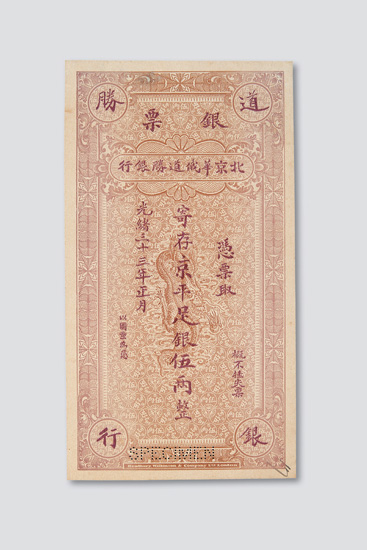 道勝
銀票
北京華俄道勝銀行
憑票取
寄存京平足銀伍兩整
光緒三十三年正月
概不挂失票
銀行
SPECIMEN
Bradbury Wilkinson & Company Ltd London